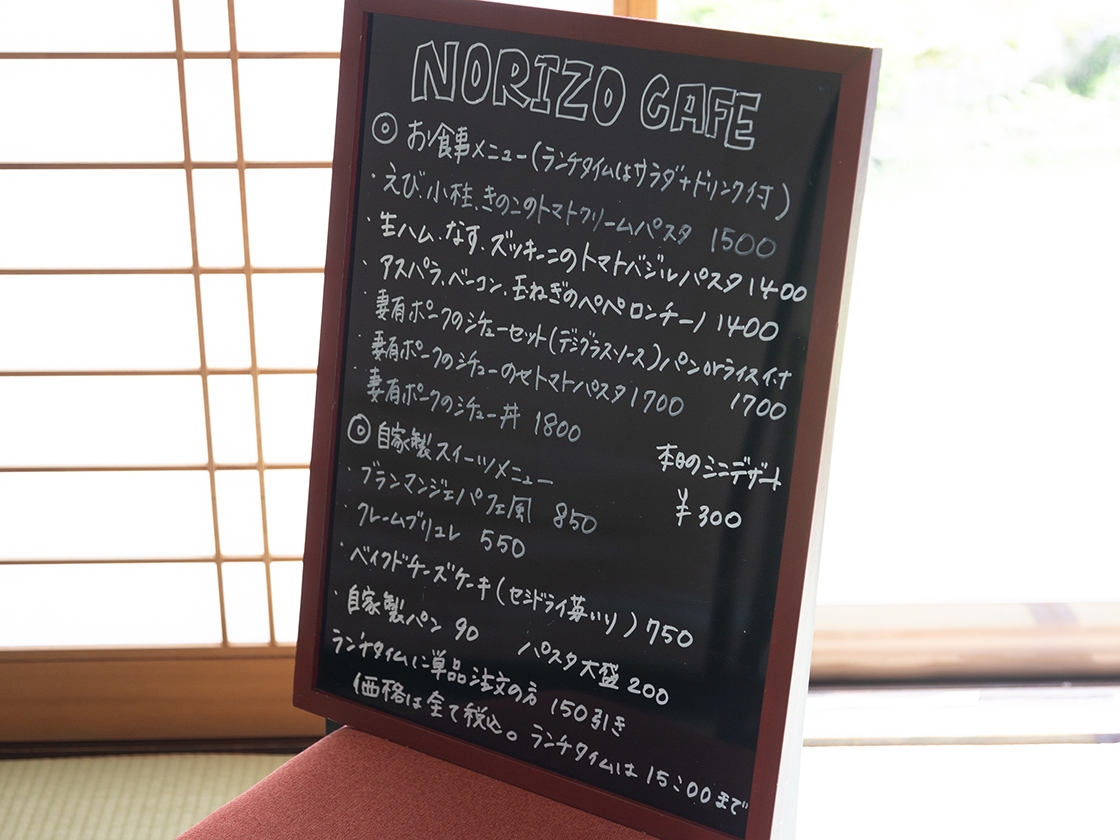 NORIZO CAFE
◎ お食事メニュー(ランチタイムはサラダ+ドリンク付)
・えび、小柱、きのこのトマトクリームパスタ 1500
・生ハム、なす、ズッキーニのトマトバジルパスタ 1400
・アスパラ、ベーコン、玉ねぎのペペロンチーノ 1400
妻有ポークのシチューセット(デミグラスソース)パンorライス付 1700
妻有ポークのシチューのせトマトパスタ 1700
妻有ポークのシチュー丼 1800
◎ 自家製スイーツメニュー
本日のミニデザート
¥300
・ブランマンジェパフェ風 850
・クレームブリュレ 550
・ベイクドチーズケーキ(セミドライ苺いり) 750
・自家製パン 90
パスタ大盛 200
ランチタイムに単品注文の方 150引き
価格は全て税込。ランチタイムは 15:00まで